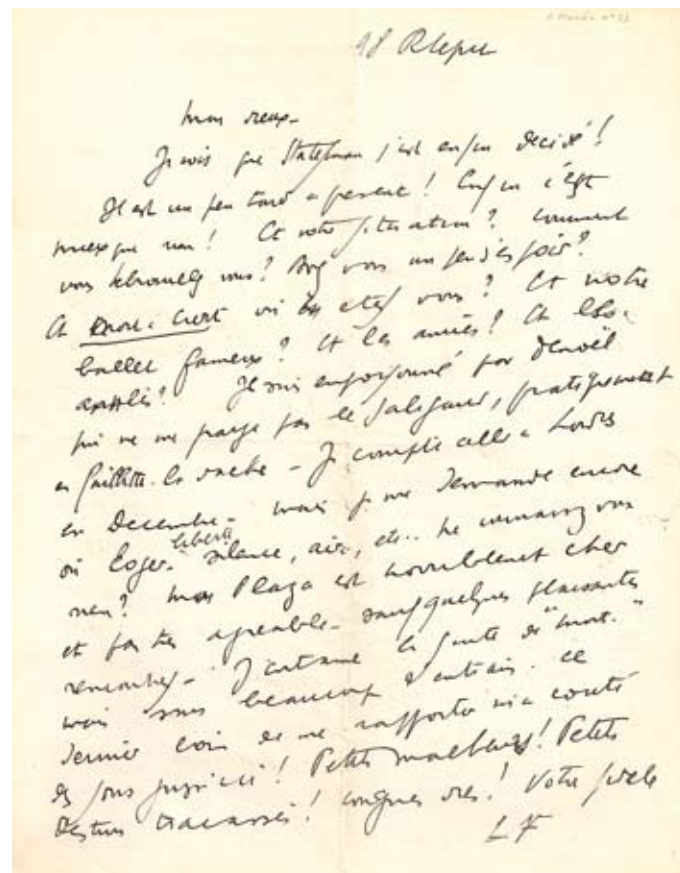 98 R Lepic
Mon vieux -
Je vois que Statesman s'est enfin decidé !
Il est un peu tard a present ! Enfin c'est
mieux que rien ! Et votre situation ? Comment
vous debrouillez vous ? Avez vous un peu d'espoir ?
Et Mort à Credit où en etes vous ? Et notre
ballet fameux ? Et les amies ? Et
Je suis empoisonné par Denoël
qui ne me paye pas le saligaud, pratiquement
en faillite la vache - Je compte aller a Londres
en Decembre - mais je me demande encore
où loger - liberté silence, air, etc.. Ne connaissez vous
rien ? Mon Plaza est horriblement cher
et pas très agreable - sauf quelques plaisantes
rencontres - J'entame la suite de "Mort."
mais sans beaucoup d'entrain. Ce
dernier loin de me rapporter m'a couté
des sous jusqu'ici ! Petits malheurs ! Petits
destins tracassés ! Longues vies ! Votre fidele
LF